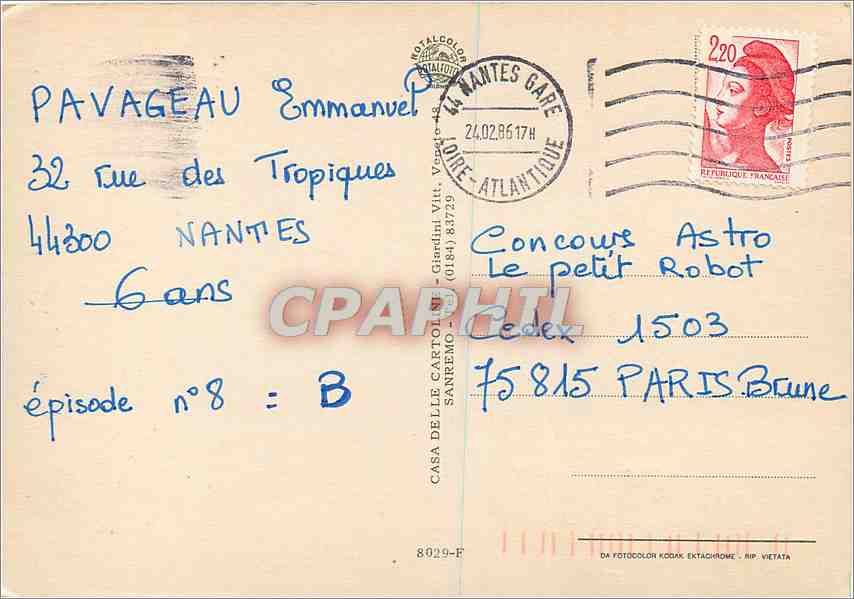 PAVAGEAU Emmanuel
32 rue des Tropiques
44300 NANTES
6 ans
épisode n°8 = B
ROTALCOLOR
ROTALFOTO
CASA DELLE CARTOLINE - Giardini Vitt. Veneto 48
SANREMO - Tel. (0184) 83729
8029-F
44 NANTES GARE
24.02.86 17H
LOIRE-ATLANTIQUE
2,20
POSTES
REPUBLIQUE FRANÇAISE
Concours Astro
Le petit Robot
Cedex 1503
75815 PARIS Brune
DA FOTOCOLOR KODAK EKTACHROME - RIP. VIETATA
CPAPHIL